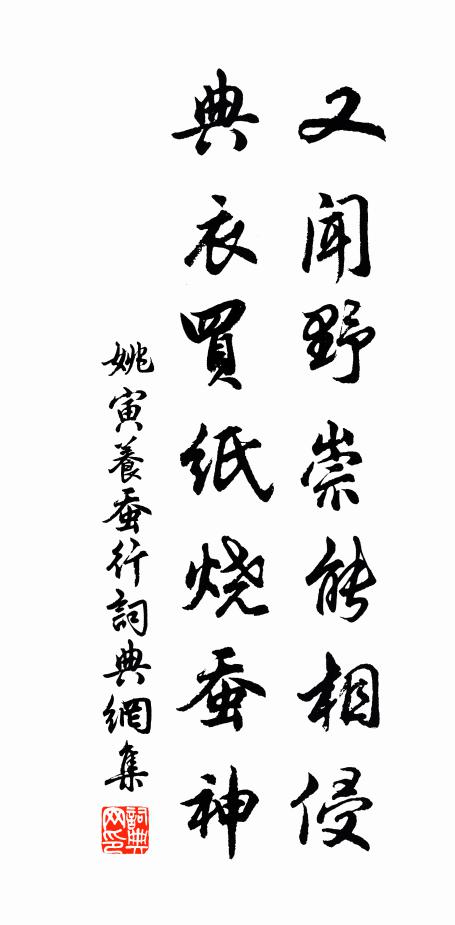 又闻野祟能相侵
典衣買紙烧蚕神
姚寅養蚕行詞典網集
詞典
网印